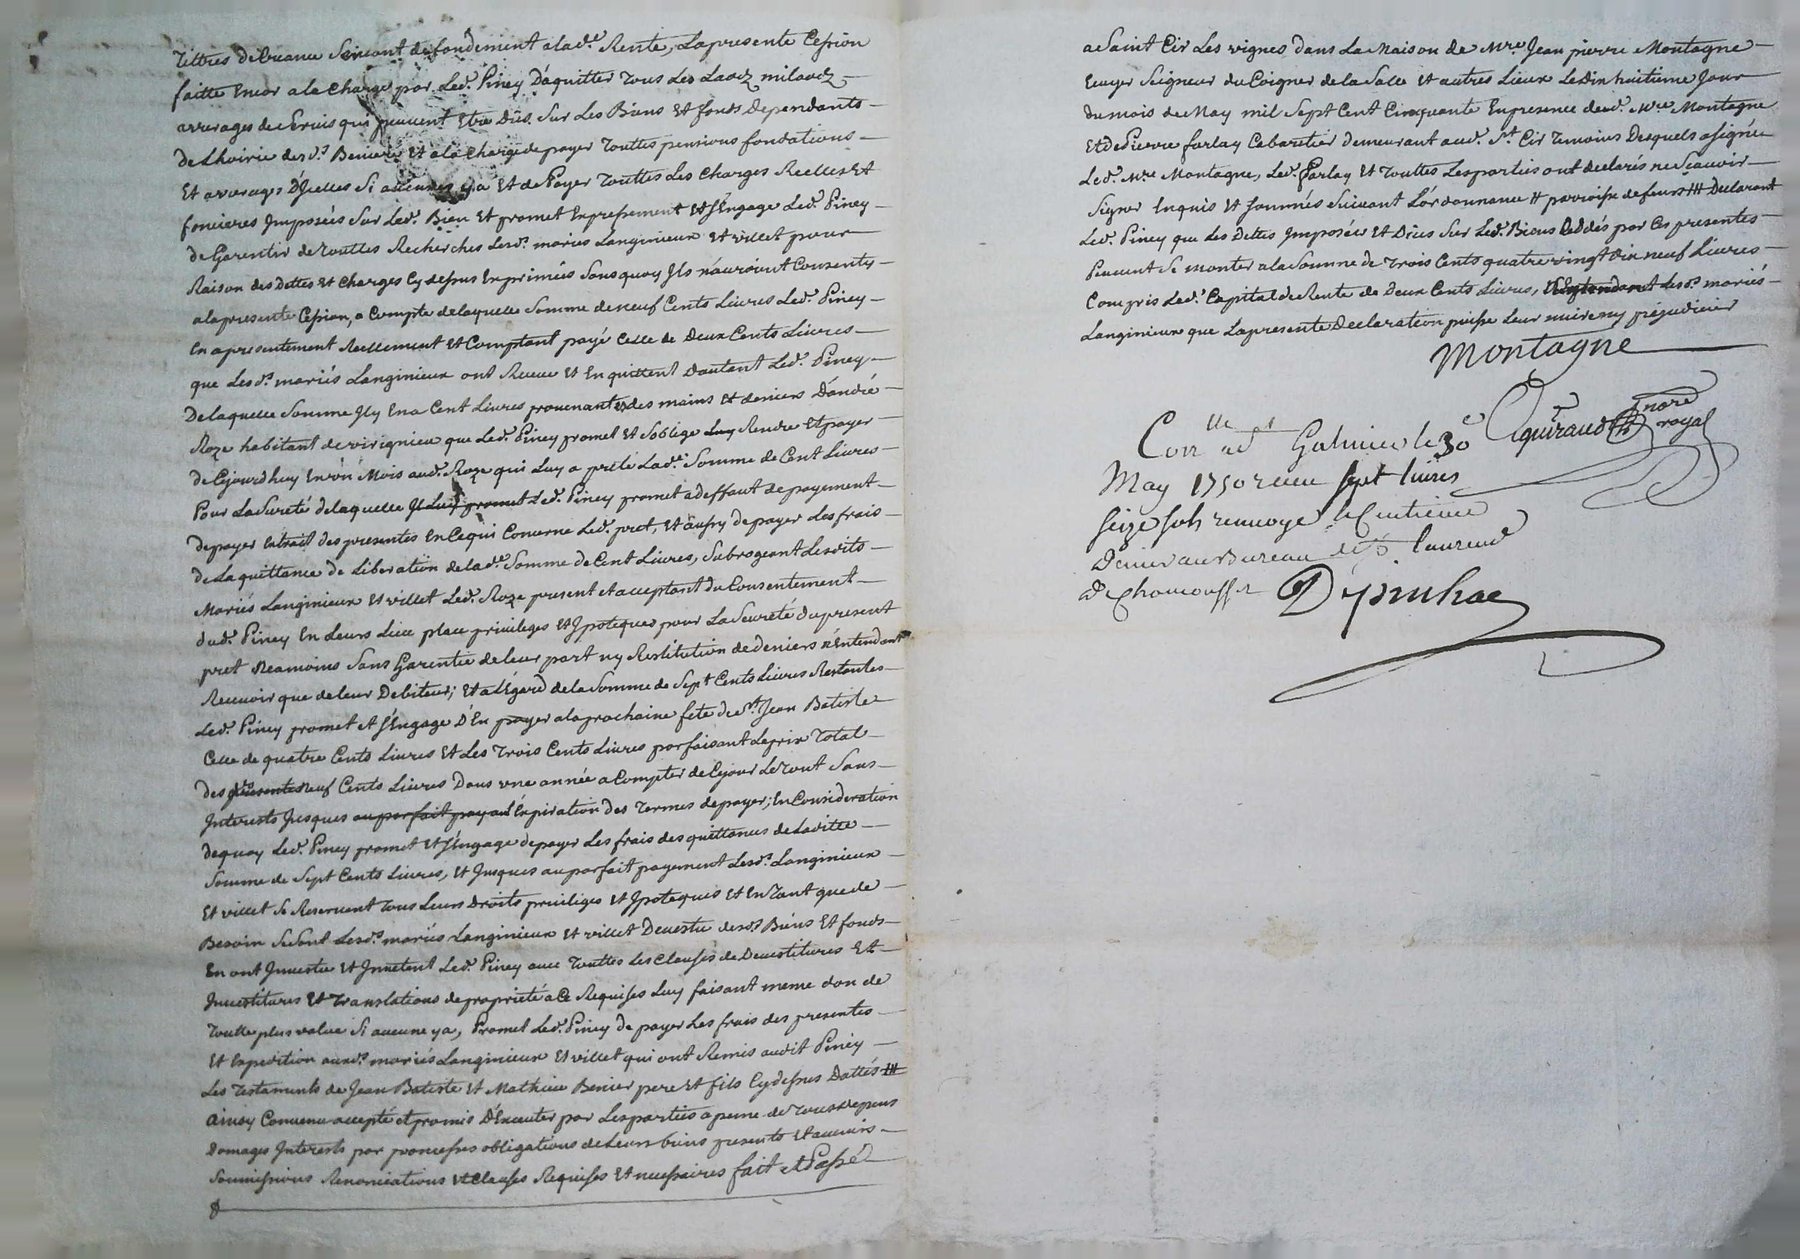 Tittres de Creance Servant de fondement a lad.e Rente, La presente Cession
faitte encor a la Charge par Led. Piney D'aquitter Tous Les Laodz milaodz
arrerages de Servis qui peuvent Etre Dûs Sur Les Biens Et fonds Dependants
de L'hoirie desd.s Benier Et a la Charge de payer Touttes pensions fondations
Et arrerages D'jcelles Si aucunes y a Et de Payer Touttes Les Charges Reelles Et
foncieres Jmposées Sur Led. Bien Et promet Expressement Et S'Engage Led. Piney
de Garentir de Touttes Recherches Lesd.s mariés Langinieux Et villet pour
Raison des Dettes Et Charges Cy dessus Exprimées Sans quoy Jls n'auroient Consenty
a la presente Cession, a Compte de laquelle Somme de neuf Cents Livres Led. Piney
En a presentement Reellement Et Comptant payé Celle de Deux Cents Livres
que Lesd.s mariés Langinieux ont Receue Et En quittent D'autant Led. Piney
De laquelle Somme Jl y En a Cent Livres provenantes des mains Et deniers D'andré
Roze habitant de virignieu que Led. Piney promet Et S'oblige Luy Rendre Et payer
de Cejourdhuy En un Mois aud. Roze qui Luy a preté Lad.e Somme de Cent Livres
Pour La Sureté de laquelle Jl Luy promet Led. Piney promet a deffaut de payement
de payer Extrait des presentes En Ce qui Concerne Led. pret, Et aussy de payer Les frais
de La quittance de Liberation de lad.e Somme de Cent Livres, Subrogeant Lesdits
Mariés Langinieux Et villet Led. Roze present et acceptant du Consentement
dud. Piney En Leurs Lieu place privileges Et Jpoteques pour La Seureté du present
pret Neamoins Sans Garentie de leur part ny Restitution de deniers n'Entendant
Recevoir que de leur Debiteur; Et a L'Egard de la Somme de Sept Cents Livres Restantes
Led. Piney promet Et S'Engage D'En payer a la prochaine fete de St. Jean Batiste
Celle de quatre Cents Livres Et Les Trois Cents Livres parfaisant Le prix Total
des presentes neuf Cents Livres Dans une année a Compter de Cejour Le Tout Sans
Jnterests Jusques au parfait payant L'Expiration des Termes de payer; En Consideration
de quoy Led. Piney promet Et S'Engage de payer Les frais des quittances de Laditte
Somme de Sept Cents Livres, Et Jusques au parfait payement Lesd.s Langinieux
Et villet Se Reservent Tous Leurs Droits privileges Et Jpoteques Et En Tant que de
Besoin Se Sont Lesd.s mariés Langinieux Et villet Devestu desd.s Biens Et fonds
En ont Jnvestu Et Jnvetent Led. Piney avec Touttes Les Clauses de Devestitures Et
Jnvestitures Et Translations de proprieté a Ce Requises Luy faisant meme don de
Toutte plus value Si aucune y a, Promet Led. Piney de payer Les frais des presentes
Et Expedition auxd.s mariés Langinieux Et villet qui ont Remis audit Piney
Les Testaments de Jean Batiste Et Mathieu Benier pere Et fils Cy dessus Dattés
ainsy Convenu accepté et promis D'Executer par Les parties a peine de Tous depens
Domages Jnterests par promesses obligations de Leurs biens presents Et avenirs
Soumissions Renonciations Et Clauses Requises Et necessaires fait et Passé
a Saint Cir Les vignes Dans La Maison de Mre Jean pierre Montagne
Ecuyer Seigneur du Poigner de la Sale Et autres Lieux Le Dix huitieme Jour
du mois de May mil Sept Cent Cinquante En presence dud. Mre Montagne
Et de Pierre farlay Cabaretier demeurant aud. St Cir Temoins Desquels a Signé
Led. Mre Montagne, Led. Farlay Et Touttes Les parties ont declarés ne Scavoir
Signer Enquis Et Sommés Suivant L'ordonnance # parroisse de feurs ### Declarant
Led. Piney que Les Dettes Jmposées Et Dûes Sur Led. Biens Cedés par Ces presentes
Peuvent Se monter a la Somme de Trois Cents quatre vingt Dix neuf Livres
Compris Led. Capital de Rente de Deux Cents Livres, Lesd.s mariés
Langinieux que La presente Declaration puisse Leur nuire ny prejudicier
Montagne
nore
royal
Con.lle a St Galmier le 30e
May 1750 receu sept livres
seize sols renvoyé le Centieme
Denier au Bureau de St laurend
de Chamousset Despinhac